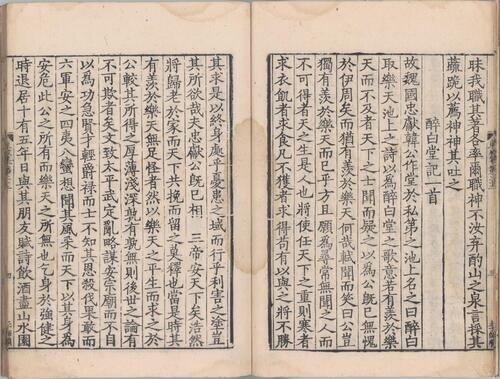 昧我職上者各率爾職神不汝弃酌山之泉言採其
蔬跪以薦神神其吐之
醉白堂記一首
故魏國忠獻韓公作堂於私第之池上名之曰醉白
取樂天池上之詩以為醉白堂之歌意若有羨於樂
天而不及者天下之士聞而疑之以為公既已無愧
於伊周矣而猶有羨於樂天何哉軾聞而笑曰公豈
獨有羨於樂天而已乎方且願為尋常無聞之人而
不可得者天之生是人也將使任天下之重則寒者
求衣飢者求食凡不獲者求得苟有以與之將不勝
其求是以終身處乎憂患之域而行乎利害之塗豈
其所欲哉夫忠獻公既已相 三帝安天下矣浩然
將歸老於家而天下共挽而留之莫釋也當是時其
有羨於樂天無足怪者然以樂天之平生而求之於
公較其所得之厚薄淺深孰有孰無則後世之論有
不可欺者矣文致太平武定亂略謀安宗廟而不自
以為功急賢才輕爵祿而士不知其恩殺伐果敢而
六軍安之四夷八蠻想聞其風采而天下以其身為
安危此公之所有而樂天之所無也乞身於強健之
時退居十有五年日與其朋友賦詩飲酒盡山水園